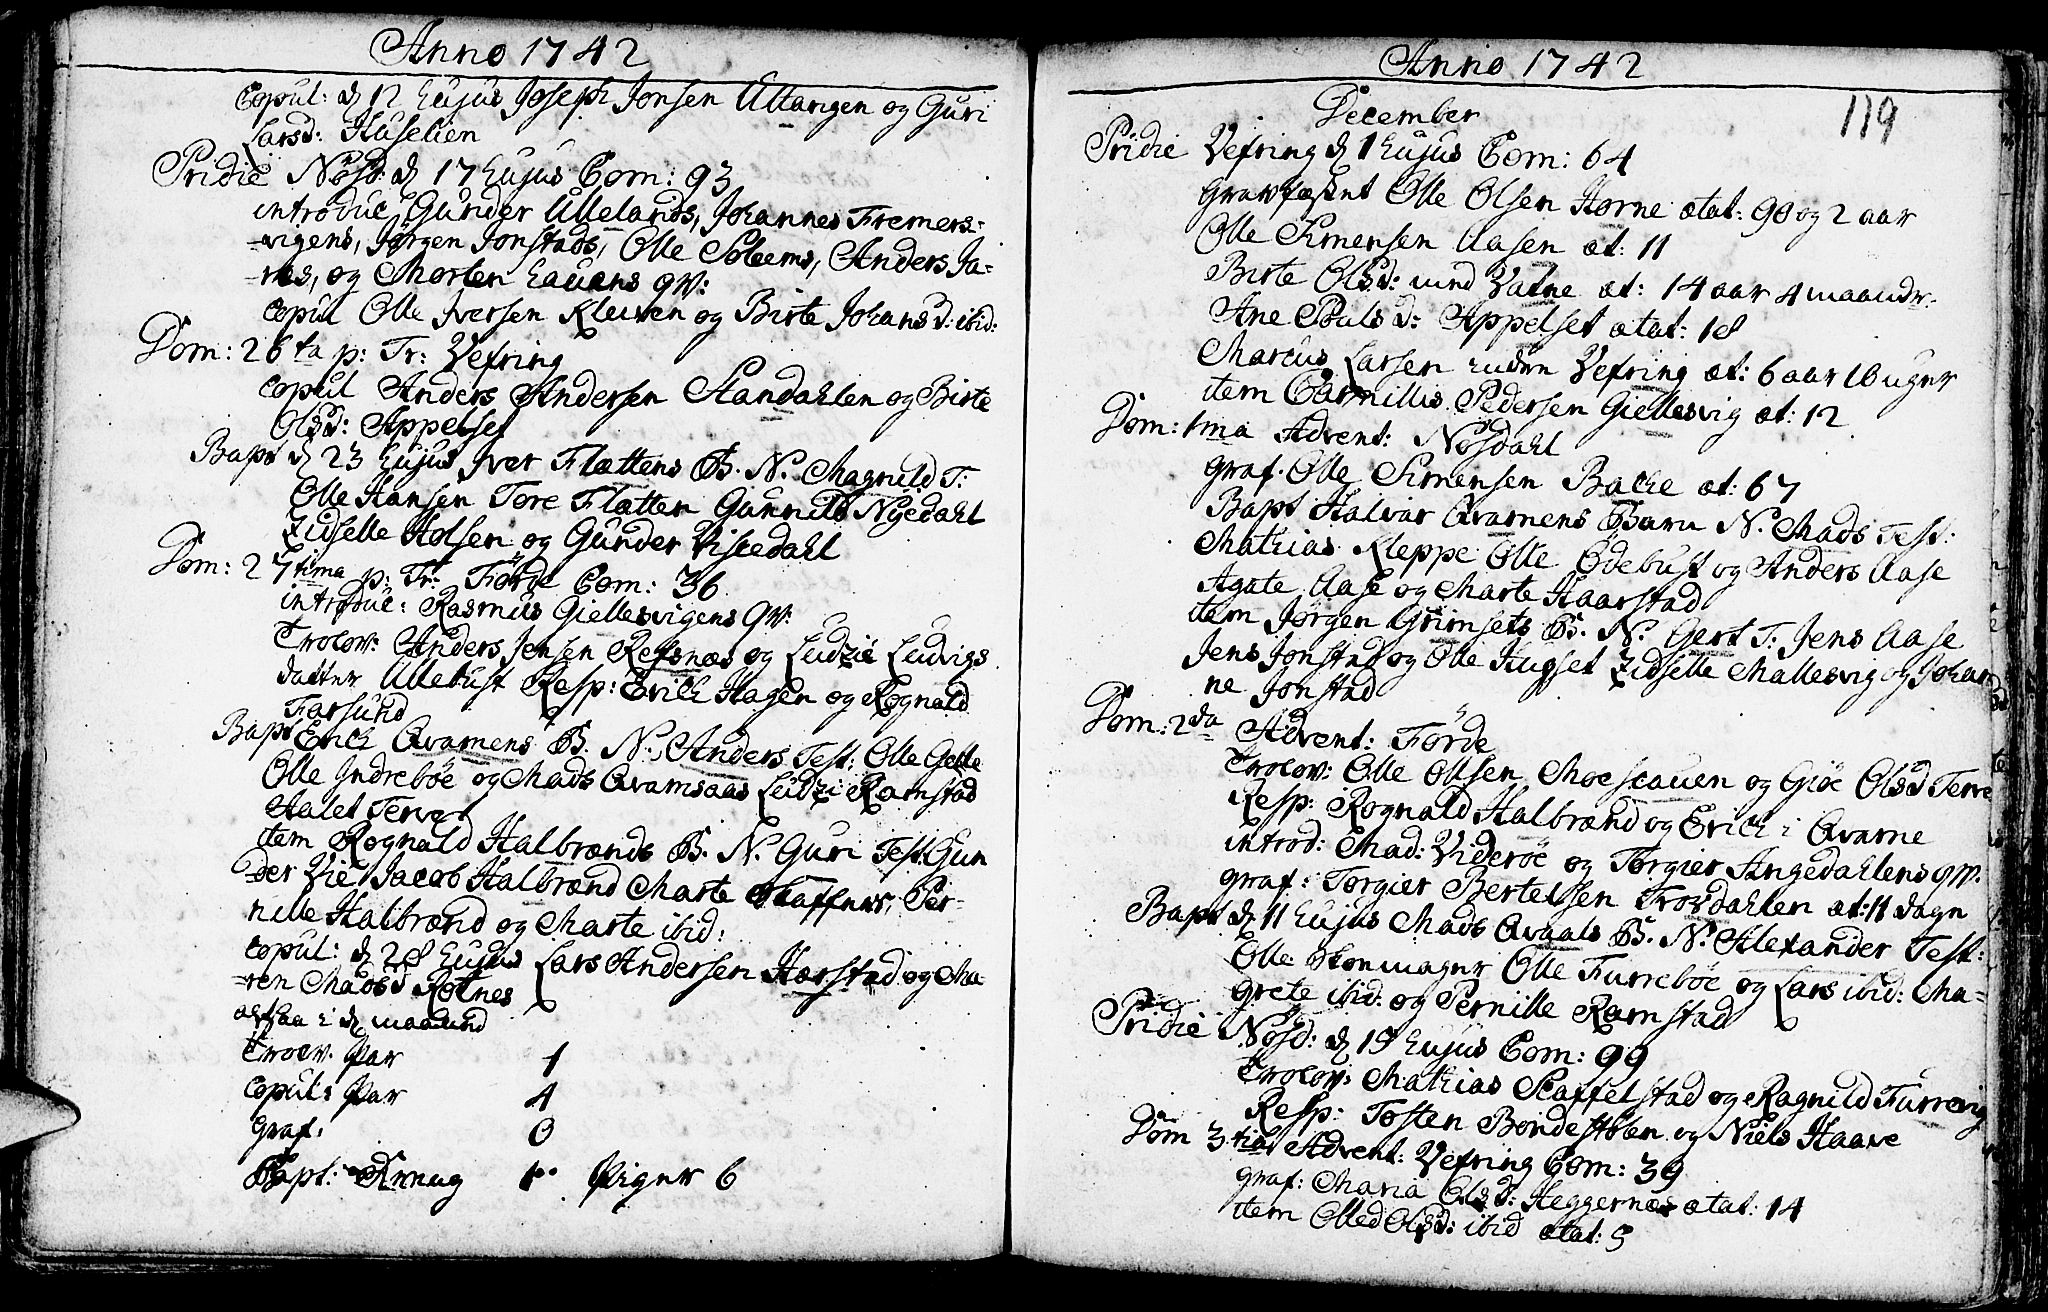 Anno 1742
Copul: d 12 hujus Joseph Jonsen Ullangen og Guri
Larsd: Huselien
Pridie Nøsd: d 17 hujus Com: 93
introduc Gunder Ullelands, Johannes Fremers-
-vigens, Jørgen Jonstads, Olle Soleems, Anders Ja-
-nes, og Morten Hauens qv:
Copul Olle Iversen Kleiven og Birte Johansd: ibid:
Dom: 26ta p: Tr: Vefring
Copul Anders Andersen Standahlen og Birte
Olsd: Appelset
Bapt d 23 hujus Iver Flættens B. N. Magnild T:
Olle Hansen Tore Flætten Gunnild Nyedahl
Zidselle Holsen og Gunder Viscedahl
Dom: 27tima p: Tr: Førde Com: 36
introduc: Rasmus Giellesvigens qv:
Trolov: Anders Jensen Refsnæs og Lidzie Ludvigs
datter Ullebust Resp: Erich Hagen og Rognald
Farsund
Bapt Erich Qvamens B. N. Anders Test: Olle Gielle
Olle Indrebøe og Mads Qvamsaas Lidzi Ramstad
Halet Terve
item Rognald Halbrænds B. N. Guri Test: Gun
-der Vie Jacob Halbrænd Marte Staffens, Per-
nille Halbrænd og Marte ibid:
Copul: d 28 hujus Lars Andersen Harstad og Ma
-ren Madsd Rotnes
altsaa i d maanid
Trolv. Par 1
Copul: Par 4
Graf: 0
Bapt: Dreng 1. Piger 6
Anno 1742
119
December
Pridie Vefring d 1 hujus Com: 64
Gravfæstet Olle Olsen Horne ætat: 90 og 2 aar
Olle Simensen Aasen æt: 11
Birte Olsd: Vatne æt: 14 aar 4 maander
Ane Poulsd: Appelset ætat: 18
Marcus Larsen inden Vefring æt: 6 aar 16 uger
item Camillis Pedersen Giellesvig æt: 12
Dom: 1ma Advent: Nøsdahl
Graf. Olle Simensen Bache æt: 67
Bapt Halvar Qvamens Barn N. Mads Test:
Mathias Kleppe Olle Ødebust og Anders Aase
Agate Aase og Marte Haarstad
item Jørgen Grimsets B. N. Gert T: Jens Aase
Jens Jonstad og Olle Hugset Zidselle Mallesvig og Johan
ne Jonstad
Dom: 2da Advent: Førde
Trolov: Olle Ollsen Moescauen og Giøe Olsd Terve
Resp: Rognald Halbrænd og Erich i Qvame
introd: Mad: Viderøe og Torgier Angedahlens qv:
graf: Torgier Bertelsen Trovdahlen æt: 11 dage
Bapt d 11 hujus Mads Qvaals B. N. Alexander Test:
Olle Skomager Olle Furrebøe og Lars ibid: Ma-
grete ibid: og Pernille Ramstad
Pridie Nøsd: d 15 hujus Com: 99
Trolov: Mathias Staffelstad og Ragnild Furrevig
Resp: Tosten Bondestøben og Niels Haave
Dom 3tia Advent: Vefring Com: 39
graf: Maria Olsd: Heggernæs ætat: 14
item Olled Olsd: ibid ætat: 5